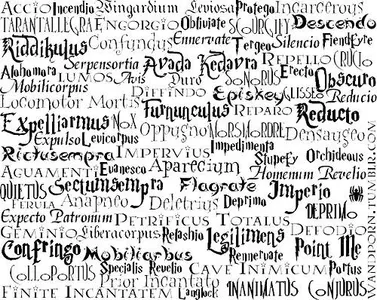 Accio Incendio Wingardium Leviosa Protego Incarcerous
Tarantallegra Engorgio Obliviate Scourgify Descendo
Riddikulus Confundus Ennervate Tergeo Silencio FiendFyre
Serpensortia Avada Kedavra Repello Crucio
Alohomora Lumos Avis Duro Sonorus Erecto Obscuro
Mobilicorpus Diffindo Episkey Glisseo Reducio
Locomotor Mortis Furnunculus Reparo Reducto
Expelliarmus Nox Oppugno Morsmordre Densaugeo
Expulso Levicorpus Impedimenta
Rictusempra Impervius Stupefy Orchideous
Aguamenti Evanesco Aparecium Homenum Revelio
Quietus Sectumsempra Flagrate Imperio
Ferula Anapneo Deletrius Deprimo Deprimo
Expecto Patronum Petrificus Totalus Defodio
Geminio Liberacorpus Refashio Legilimens Point Me
Confringo Mobiliarbus Rennervate
Colloportus Specialis Revelio Cave Inimicum Portus
Prior Incantato
Finite Incantatem Langlock Inanimatus Conjurus
WANDPORN.TUMBLR.COM